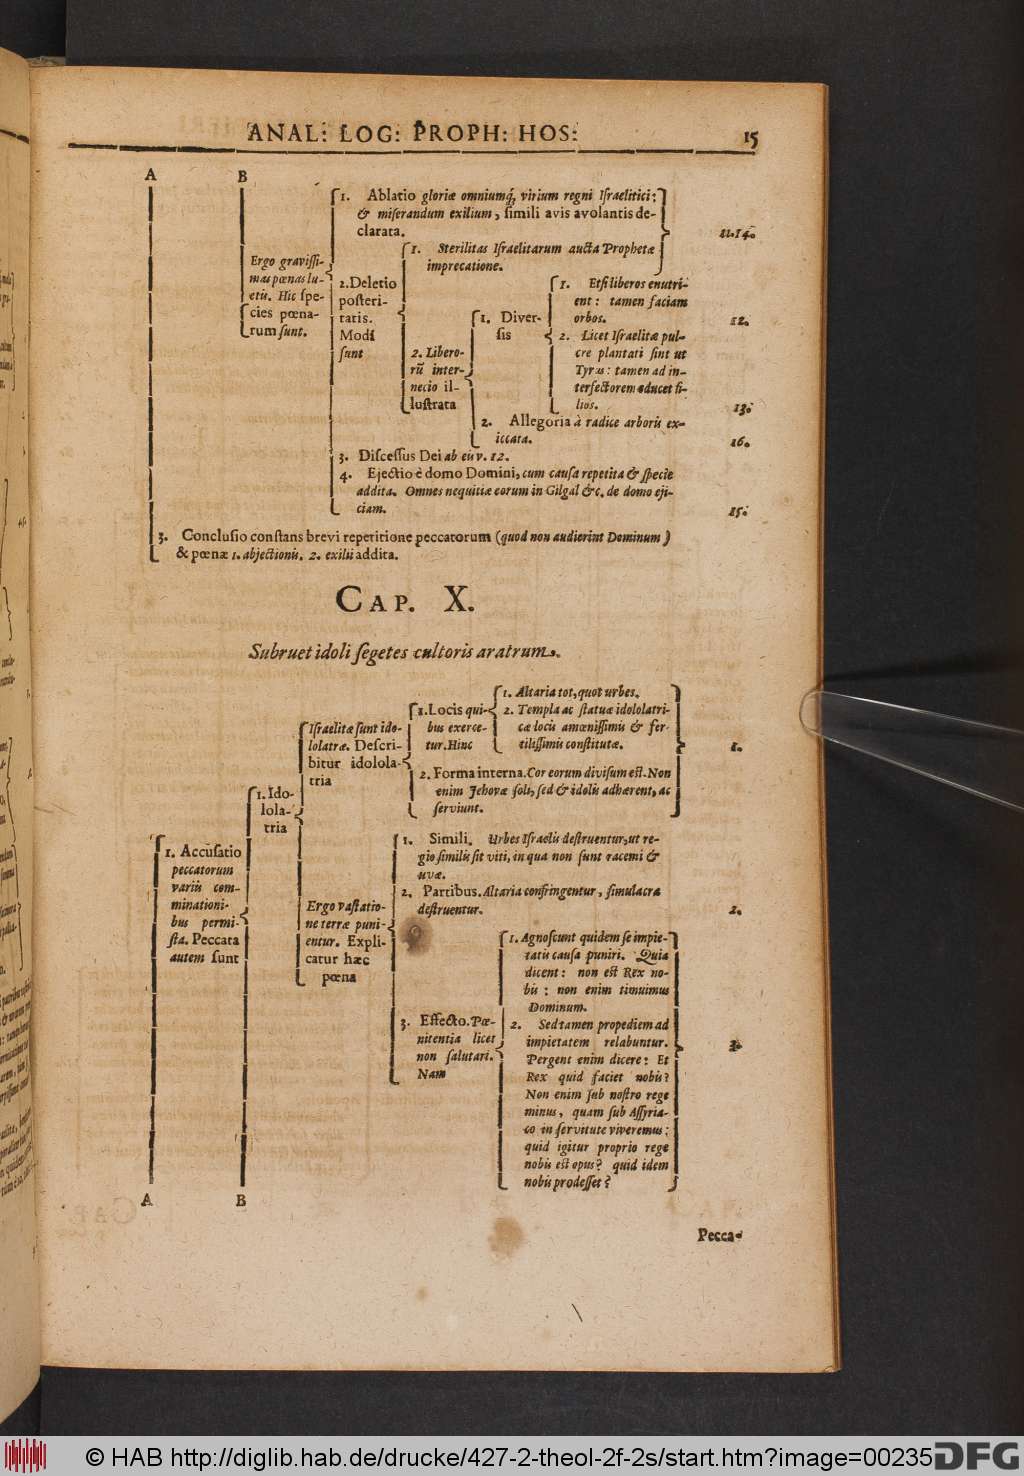 ANAL: LOG: PROPH: HOS:
15
A
B
1. Ablatio gloriæ omniumq́, virium regni Iſraelitici:
& miſerandum exilium, ſimili avis avolantis de-
clarata.
11.14.
Ergo graviſſi-
mas pœnas lu-
etis. Hic ſpe-
cies pœna-
rum ſunt.
2. Deletio
poſteri-
tatis.
Modi
ſunt
1. Sterilitas Iſraelitarum aucta Prophetæ
imprecatione.
2. Libero-
rū inter-
necio il-
luſtrata
1. Diver-
ſis
1. Etſi liberos enutri-
ent: tamen faciam
orbos.
12.
2. Licet Iſraelitæ pul-
cre plantati ſint ut
Tyrus: tamen ad in-
terfectorem educet fi-
lios.
13.
2. Allegoria à radice arboris ex-
iccata.
16.
3. Diſceſſus Dei ab eis v. 12.
4. Ejectio è domo Domini, cum cauſa repetita & ſpecie
addita. Omnes nequitiæ eorum in Gilgal &c. de domo eji-
ciam.
15.
3. Concluſio conſtans brevi repetitione peccatorum (quod non audierint Dominum)
& pœnæ 1. abjectionis. 2. exilii addita.
CAP. X.
Subruet idoli ſegetes cultoris aratrum.
1. Accuſatio
peccatorum
variis com-
minationi-
bus permi-
ſta. Peccata
autem ſunt
1. Ido-
lola-
tria
Iſraelitæ ſunt ido-
lolatræ. Deſcri-
bitur idolola-
tria
1. Locis qui-
bus exerce-
tur. Hinc
1. Altaria tot, quot urbes.
2. Templa ac ſtatuæ idololatri-
cæ locis amœniſſimis & fer-
tiliſſimis conſtitutæ.
1.
2. Forma interna. Cor eorum diviſum eſt. Non
enim Jehovæ ſoli, ſed & idolis adhærent, ac
ſerviunt.
Ergo vaſtatio-
ne terræ puni-
entur. Expli-
catur hæc
pœna
1. Simili. Urbes Iſraelis deſtruentur, ut re-
gio ſimilis ſit viti, in qua non ſunt racemi &
uvæ.
2. Partibus. Altaria confringentur, ſimulacra
deſtruentur.
2.
3. Effecto. Pœ-
nitentia licet
non ſalutari.
Nam
1. Agnoſcunt quidem ſe impie-
tatis cauſa puniri. Quia
dicent: non eſt Rex no-
bis: non enim timuimus
Dominum.
2. Sed tamen propediem ad
impietatem relabuntur.
Pergent enim dicere: Et
Rex quid faciet nobis?
Non enim ſub noſtro rege
minus, quam ſub Aſſyria-
co in ſervitute viveremus:
quid igitur proprio rege
nobis eſt opus? quid idem
nobis prodeſſet?
3.
A
B
Pecca-
© HAB http://diglib.hab.de/drucke/427-2-theol-2f-2s/start.htm?image=00235
DFG